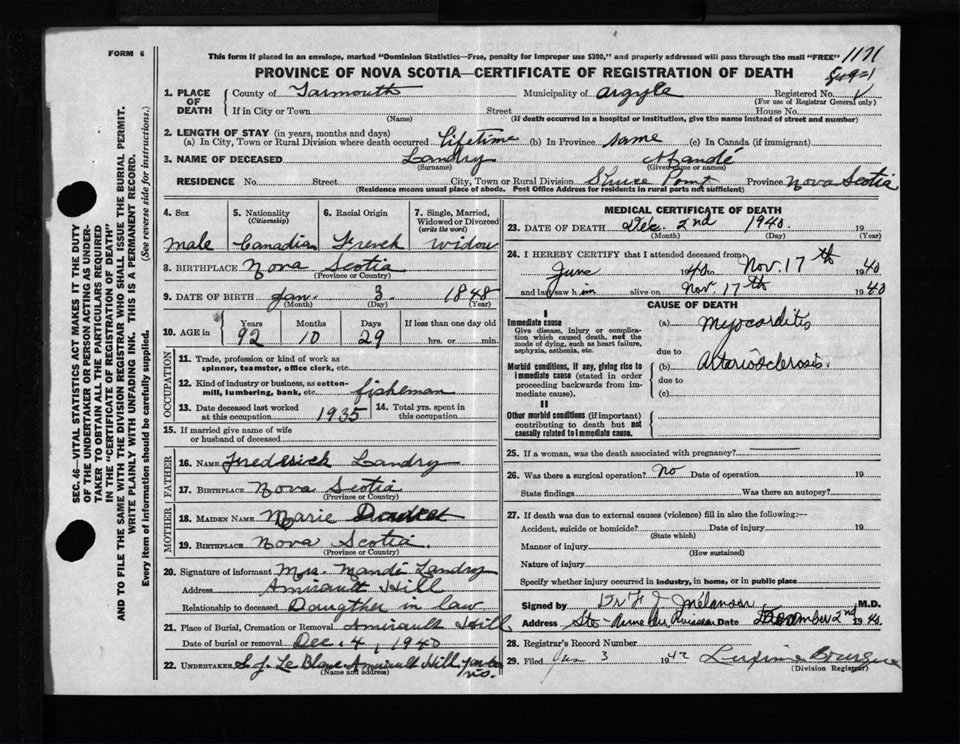 FORM 6
This form if placed in an envelope, marked "Dominion Statistics—Free, penalty for improper use $300," and properly addressed will pass through the mail "FREE"
1171
PROVINCE OF NOVA SCOTIA—CERTIFICATE OF REGISTRATION OF DEATH
SEC. 46—VITAL STATISTICS ACT MAKES IT THE DUTY
OF THE UNDERTAKER OR PERSON ACTING AS UNDER-
TAKER TO OBTAIN ALL THE PARTICULARS REQUIRED
IN THE "CERTIFICATE OF REGISTRATION OF DEATH"
AND TO FILE THE SAME WITH THE DIVISION REGISTRAR WHO SHALL ISSUE THE BURIAL PERMIT.
WRITE PLAINLY WITH UNFADING INK. THIS IS A PERMANENT RECORD.
Every item of information should be carefully supplied. (See reverse side for instructions.)
1. PLACE OF DEATH County of Yarmouth Municipality of Argyle Registered No.
(For use of Registrar General only)
If in City or Town Street House No.
(Name) (If death occurred in a hospital or institution, give the name instead of street and number)
2. LENGTH OF STAY (in years, months and days)
(a) In City, Town or Rural Division where death occurred Lifetime (b) In Province same (c) In Canada (if immigrant)
3. NAME OF DECEASED Landry Mandé
(Surname) (Given name or names)
RESIDENCE No. Street City, Town or Rural Division Point Province Nova Scotia
(Residence means usual place of abode. Post Office Address for residents in rural parts not sufficient)
4. Sex 5. Nationality 6. Racial Origin 7. Single, Married,
(Citizenship) Widowed or Divorced
(write the word)
male Canadian French widow
8. BIRTHPLACE Nova Scotia
(Province or Country)
9. DATE OF BIRTH Jan. 3 1848
(Month) (Day) (Year)
10. AGE in Years Months Days If less than one day old
92 10 29 hrs. or min.
OCCUPATION
11. Trade, profession or kind of work as
spinner, teamster, office clerk, etc.
12. Kind of industry or business, as cotton-
mill, lumbering, bank, etc. fisherman
13. Date deceased last worked
at this occupation 1935
14. Total yrs. spent in
this occupation
15. If married give name of wife
or husband of deceased
FATHER
16. NAME Frederick Landry
17. BIRTHPLACE Nova Scotia
(Province or Country)
MOTHER
18. MAIDEN NAME Marie
19. BIRTHPLACE Nova Scotia.
(Province or Country)
20. Signature of informant Mrs. Mandé Landry
Address Amirault Hill
Relationship to deceased Daugther in law
21. Place of Burial, Cremation or Removal Amirault Hill
Date of burial or removal Dec. 4, 1940
22. UNDERTAKER S. J. Le Blanc Amirault Hill
(Name and address)
MEDICAL CERTIFICATE OF DEATH
23. DATE OF DEATH Dec. 2nd 1940. 19
(Month) (Day) (Year)
24. I HEREBY CERTIFY that I attended deceased from
June 1940 to Nov. 17th 1940
and last saw him alive on Nov. 17th 1940
CAUSE OF DEATH
I
Immediate cause
Give disease, injury or complica-
tion which caused death, not the
mode of dying, such as heart failure,
asphyxia, asthenia, etc.
(a) Myocarditis
due to
Morbid conditions, if any, giving rise to
immediate cause (stated in order
proceeding backwards from im-
mediate cause).
(b) Arteriosclerosis.
due to
(c)
II
Other morbid conditions (if important)
contributing to death but not
causally related to immediate cause.
25. If a woman, was the death associated with pregnancy?
26. Was there a surgical operation? No Date of operation 19
State findings Was there an autopsy?
27. If death was due to external causes (violence) fill in also the following:—
Accident, suicide or homicide? Date of injury 19
(State which)
Manner of injury
(How sustained)
Nature of injury
Specify whether injury occurred in industry, in home, or in public place
Signed by Dr F J Melanson M.D.
Address Ste-Anne Du Ruisseau Date December 2nd 1940.
28. Registrar's Record Number
29. Filed Jan 3 19
(Division Registrar)